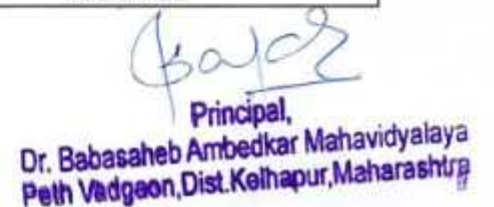 Principal,
Dr. Babasaheb Ambedkar Mahavidyalaya
Peth Vadgaon,Dist.Kolhapur,Maharashtra